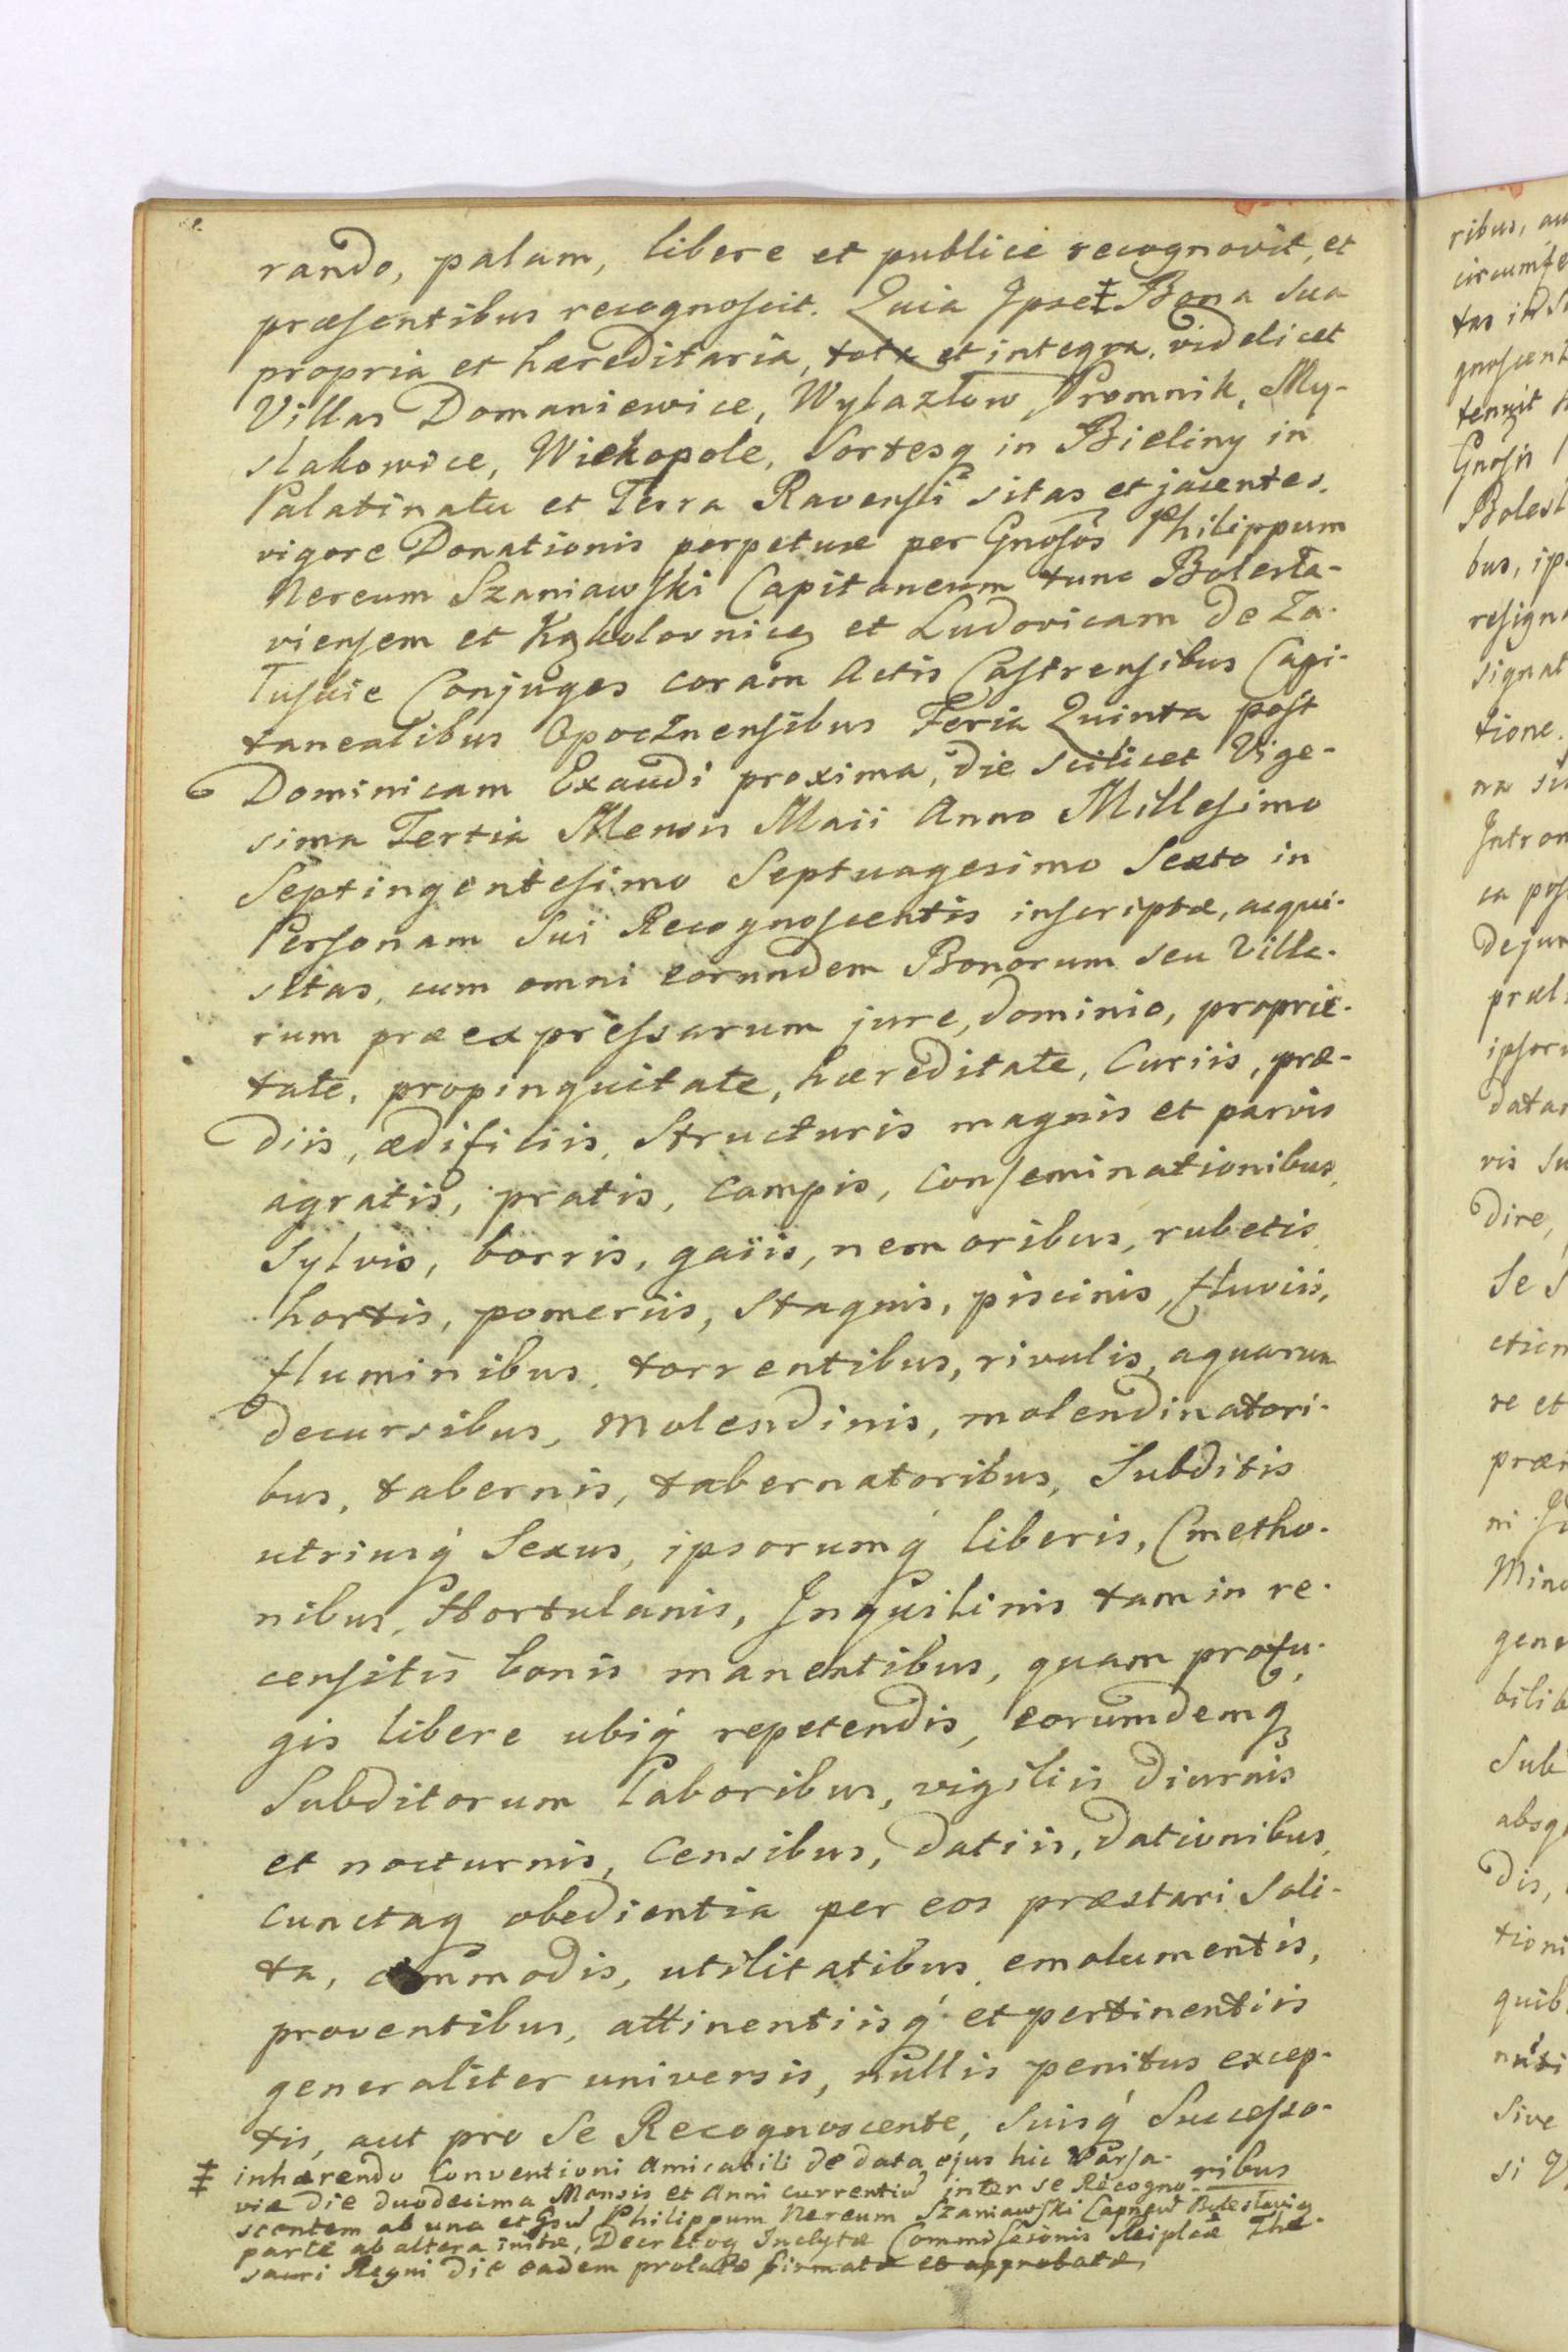 rando, palam, libere et publice recognovit, et
præsentibus recognoscit. Quia Ipse ‡ Bona Sua
propria et hæreditaria, tota et integra, videlicet
Villas Domaniewice, Wylazlow Promnik, My-
slakowice, Wickopole, Sortesq in Bieliny in
Palatinatu et Terra Ravensi sitas et jacentes,
vigore Donationis perpetuæ per Gnosos Philippum
Nereum Szaniawski Capitaneum tunc Bolesta-
viensem et Kąkolovnicę et Ludovicam de Za-
łuskie Conjuges coram Actis Castrensibus Capi-
tanealibus Opocznensibus Feria Quinta post
Dominicam Exaudi proxima, die scilicet Vige-
sima Tertia Mensis Maii Anno Millesimo
Septingentesimo Septuagesimo Sexto in
Personam Sui Recognoscentis inscriptæ, acqui-
sitas, cum omni eorundem Bonorum seu Villa-
rum præexpressarum jure, dominio, proprie-
tate, propinquitate, hæreditate, Curiis, præ-
diis, ædificiis, Structuris magnis et parvis
agratis, pratis, Campis, Conseminationibus,
Sylvis, borris, gaiis, nemoribus, rubetis,
hortis, pomeriis, Stagnis, piscinis, fluviis,
fluminibus, torrentibus, rivulis, aquarum
decursibus, molendinis, molendinatori-
bus, tabernis, tabernatoribus, Subditis
utriusq́ Sexus, ipsorumq́ liberis, Cmetho-
nibus, Hortulanis, Inquilinis tam in re-
censitis bonis manentibus, quam profu-
gis libere ubiq́ repetendis, eorumdemq
Subditorum Laboribus, vigiliis diurnis
et nocturnis, Censibus, datiis, dationibus,
cunctaq obedientia per eos præstari Soli-
ta, commodis, utilitatibus, emolumentis,
proventibus, attinentiisq́ et pertinentiis
generaliter universis, nullis penitus excep-
tis, aut pro Se Recognoscente, Suisq́ Successo-
ribus
‡ inhærendo Conventioni Amicabili de data ejus hic Varsa-
viæ die duodecima Mensis et Anni currentiu inter se Recogno-
scentem ab una et Philippum Nereum Szaniawski
parte ab altera initæ, Decretoq Inclytæ Commissionis Reiplcæ The-
sauri Regni die eadem prolato firmatæ et approbatæ,